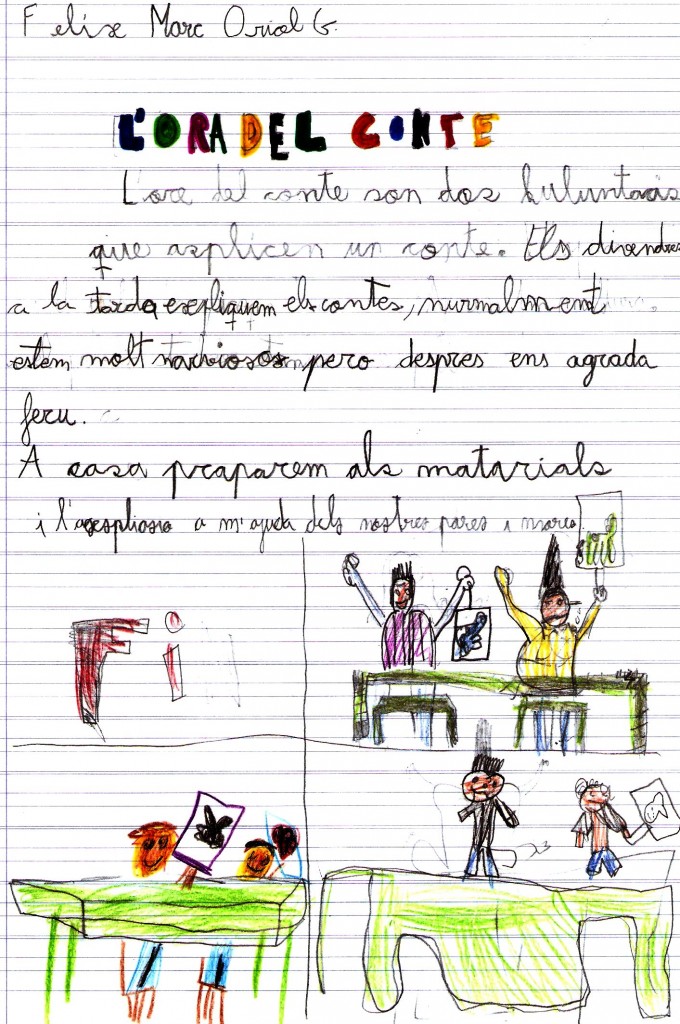 Felix Marc Oriol G.
L'ORA DEL CONTE
L'ore del conte son dos buluntaris
que asplicen un conte. Els divendres
a la tarda expliquem els contes, nurmalment
estem molt narbiosos pero despres ens agrada
feru.
A casa praparem als matarials
i l' a m'ajuda dels nostres pares i mares
Fi